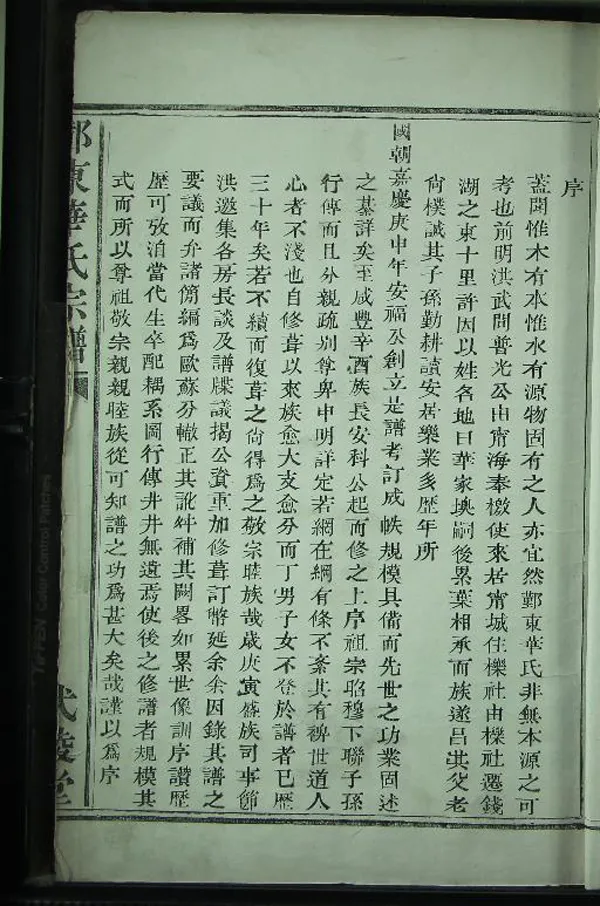 序
蓋聞惟木有本惟水有源物固有之人亦宜然鄞東華氏非無本源之可
考也前明洪武間普光公由甯海奉檄使來居甯城住櫟社由櫟社遷錢
湖之東十里許因以姓名地曰華家墺嗣後累葉相承而族遂昌其父老
尚樸誠其子孫勤耕讀安居樂業多歷年所
國朝嘉慶庚申年安福公創立是譜考訂成帙規模具備而先世之功業固述
之綦詳矣至咸豐辛酉族長安科公起而修之上序祖宗昭穆下聯子孫
行傳而且分親疏別尊卑申明詳定若網在綱有條不紊其有裨世道人
心者不淺也自修葺以來族愈大支愈分而丁男子女不登於譜者已歷
三十年矣若不續而復葺之尚得爲之敬宗睦族哉歲庚寅盛族司事節
洪邀集各房長談及譜牒議揭公資重加修葺訂幣延余余因錄其譜之
要議而弁諸簡編爲歐蘇分轍正其訛舛補其闕畧如累世像訓序讚歷
歷可攷洎當代生卒配耦系圖行傳井井無遺焉使後之修譜者規模其
式而所以尊祖敬宗親親睦族從可知譜之功爲甚大矣哉謹以爲序
東華氏宗譜
武陵堂
TIFFEN Color Control Patches